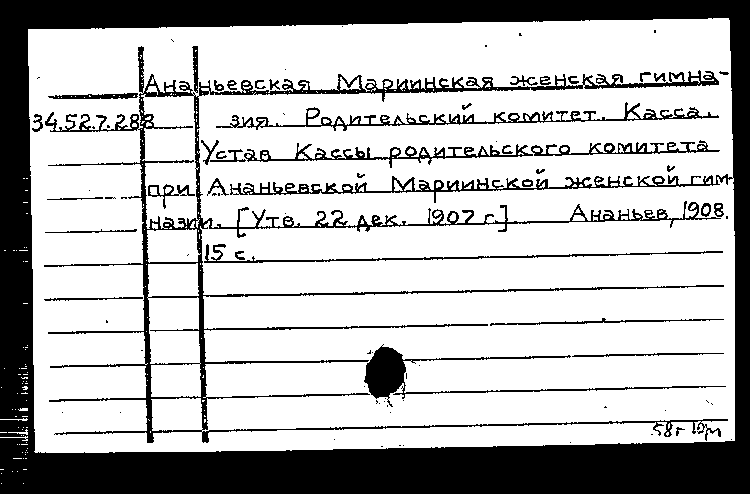 Ананьевская Мариинская женская гимна-
34.52.7.288 зия. Родительский комитет. Касса.
Устав Кассы родительского комитета
при Ананьевской Мариинской женской гим-
назии. [Утв. 22 дек. 1907 г.] Ананьев, 1908.
15 с.
58г